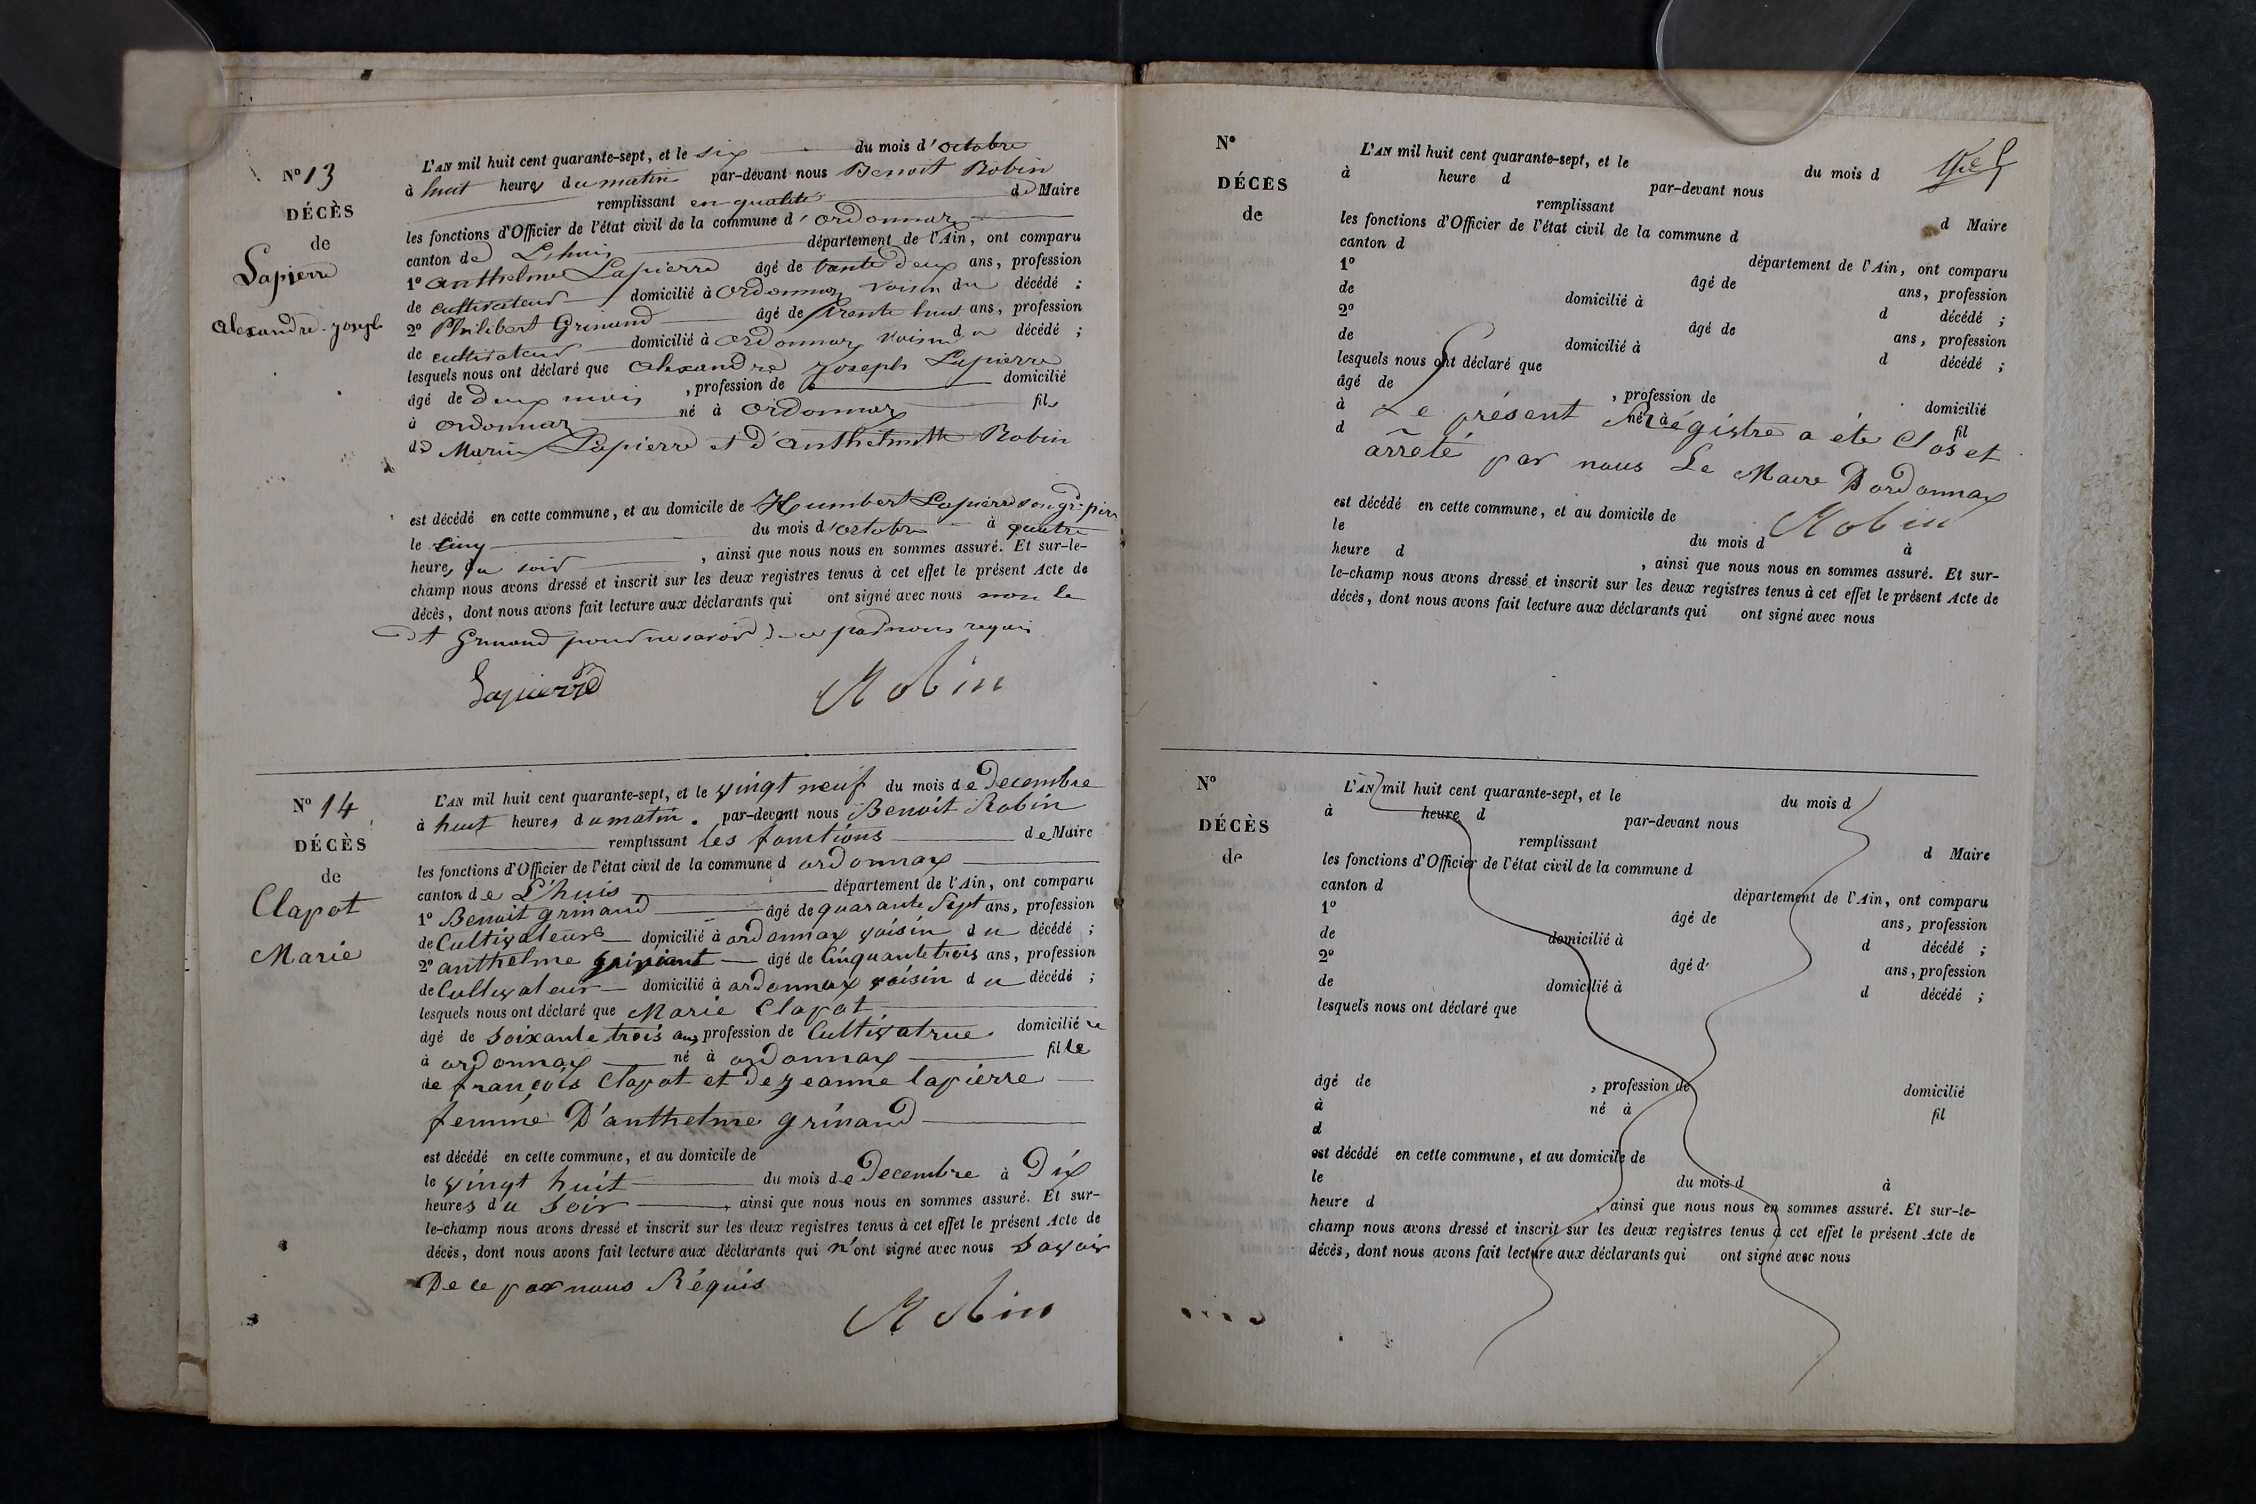 N° 13
DÉCÈS
de
Lapierre
Alexandre Joseph
L'AN mil huit cent quarante-sept, et le six du mois d'octobre
à huit heures du matin par-devant nous Benoit Robin
remplissant en qualité de Maire
les fonctions d'Officier de l'état civil de la commune d'ordonnax
canton de Lhuis département de l'Ain, ont comparu
1° anthelme Lapierre âgé de trante deux ans, profession
de cultivateur domicilié à Ordonnax voisin du décédé ;
2° Philibert Grinand âgé de trente huit ans, profession
de cultivateur domicilié à Ordonnax voisin du décédé ;
lesquels nous ont déclaré que Alexandre Joseph Lapierre
âgé de deux mois , profession de domicilié
à ordonnax né à Ordonnax fils
de Marin Lapierre et d'anthelmette Robin
est décédé en cette commune, et au domicile de Humbert Lapierre son gd père
le cinq du mois d'octobre à quatre
heures du soir , ainsi que nous nous en sommes assuré. Et sur-le-
champ nous avons dressé et inscrit sur les deux registres tenus à cet effet le présent Acte de
décès, dont nous avons fait lecture aux déclarants qui ont signé avec nous non le
dt Grinand pour ne savoir de ce par nous requis
Lapierre Robin
N° 14
DÉCÈS
de
Clapot
Marie
L'AN mil huit cent quarante-sept, et le vingt neuf du mois de Decembre
à huit heures du matin. par-devant nous Benoit Robin
remplissant les fonctions de Maire
les fonctions d'Officier de l'état civil de la commune d ordonnax
canton de L'huis département de l'Ain, ont comparu
1° Benoit grinand âgé de quarante Sept ans, profession
de Cultivateur domicilié à ordonnax voisin du décédé ;
2° anthelme âgé de Cinquante trois ans, profession
de Cultivateur domicilié à ordonnax voisin du décédé ;
lesquels nous ont déclaré que Marie Clapot
âgé de Soixante trois ans profession de Cultivatrue domicilié
à ordonnax né à ordonnax fille
de françois Clapot et de jeanne lapierre
femme D'anthelme grinand
est décédé en cette commune, et au domicile de
le vingt huit du mois de Decembre à Dix
heures du Soir , ainsi que nous nous en sommes assuré. Et sur-
le-champ nous avons dressé et inscrit sur les deux registres tenus à cet effet le présent Acte de
décès, dont nous avons fait lecture aux déclarants qui n'ont signé avec nous Savoir
De ce par nous Réquis
Robin
N°
DÉCÈS
de
L'AN mil huit cent quarante-sept, et le du mois d
à heure d par-devant nous
remplissant d Maire
les fonctions d'Officier de l'état civil de la commune d
canton d département de l'Ain, ont comparu
1° âgé de ans, profession
de domicilié à d décédé ;
2° âgé de ans, profession
de domicilié à d décédé ;
lesquels nous ont déclaré que
âgé de , profession de domicilié
à né à fil
d
Le présent Régistre a été Clos et
arrêté par nous Le Maire D'ordonnax
Robin
est décédé en cette commune, et au domicile de
le du mois d à
heure d , ainsi que nous nous en sommes assuré. Et sur-
le-champ nous avons dressé et inscrit sur les deux registres tenus à cet effet le présent Acte de
décès, dont nous avons fait lecture aux déclarants qui ont signé avec nous
N°
DÉCÈS
de
L'AN mil huit cent quarante-sept, et le du mois d
à heure d par-devant nous
remplissant d Maire
les fonctions d'Officier de l'état civil de la commune d
canton d département de l'Ain, ont comparu
1° âgé de ans, profession
de domicilié à d décédé ;
2° âgé d ans, profession
de domicilié à d décédé ;
lesquels nous ont déclaré que
âgé de , profession de domicilié
à né à fil
d
est décédé en cette commune, et au domicile de
le du mois d à
heure d , ainsi que nous nous en sommes assuré. Et sur-le-
champ nous avons dressé et inscrit sur les deux registres tenus à cet effet le présent Acte de
décès, dont nous avons fait lecture aux déclarants qui ont signé avec nous